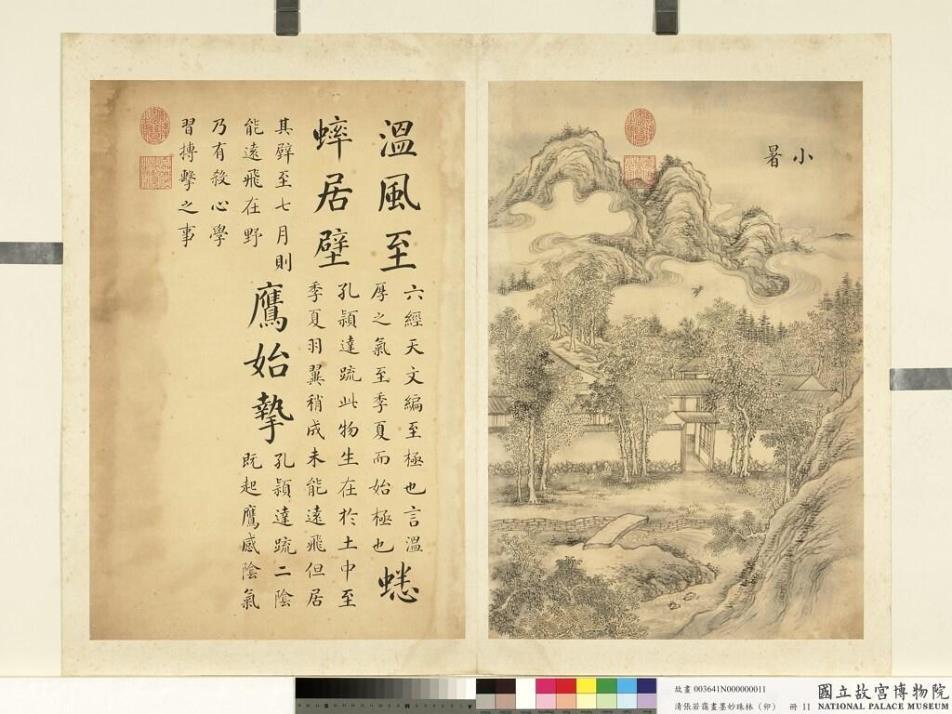 小暑
溫風至
六經天文編至極也言溫
厚之氣至季夏而始極也
蟋
蟀居壁
孔穎達疏此物生在於土中至
季夏羽翼稍成未能遠飛但居
其壁至七月則
能遠飛在野
鷹始摯
孔穎達疏二陰
既起鷹感陰氣
乃有殺心學
習搏擊之事
故畫 003641N000000011
清張若靄畫墨妙珠林（卯） 冊 11
國立故宮博物院
NATIONAL PALACE MUSEUM